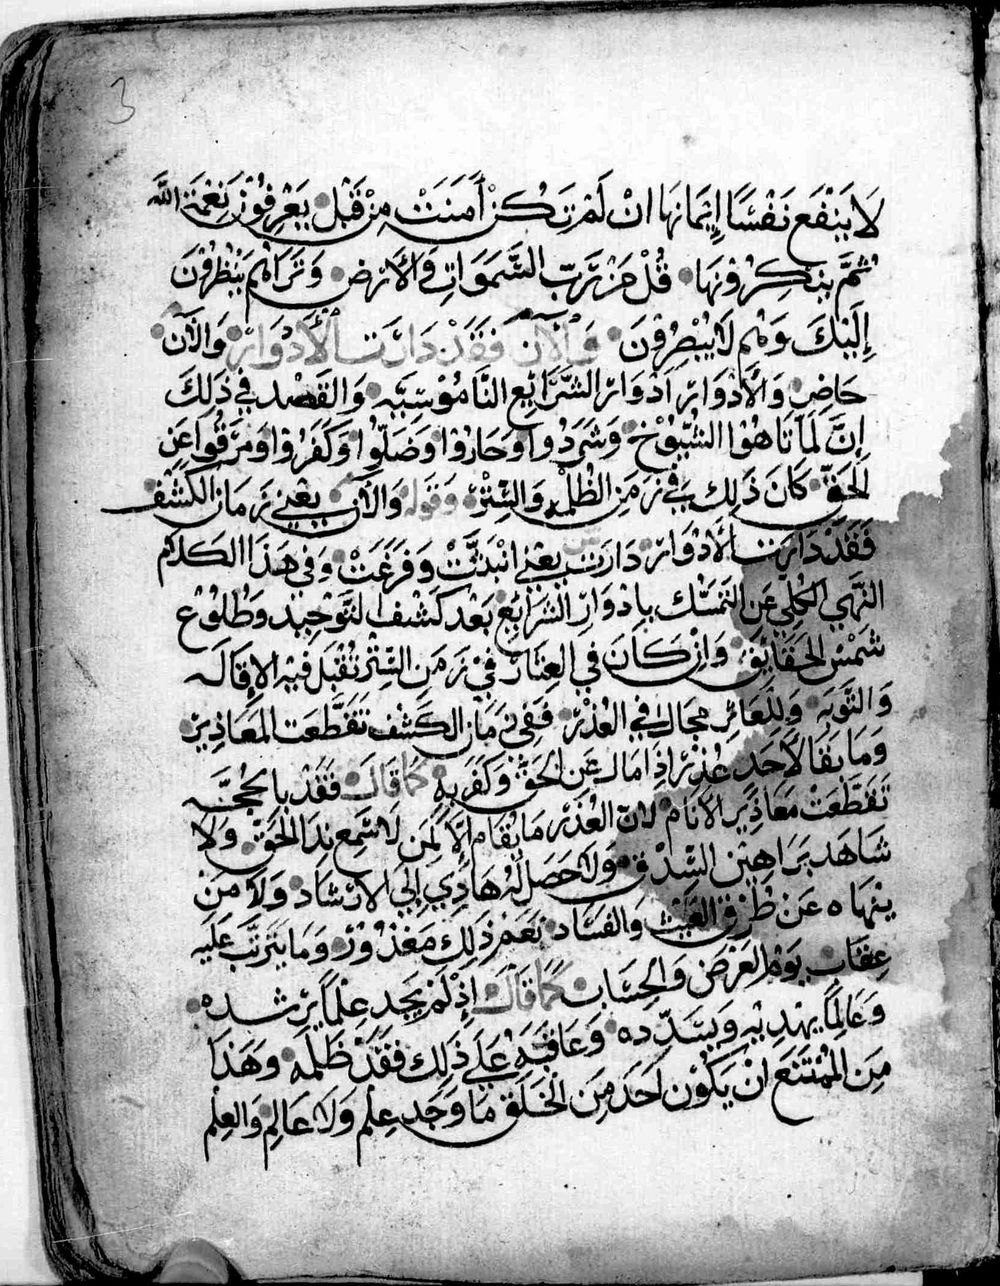 3
لَا يَنْفَع نَفْسًا إِيمَانهَا انْ لَمْ تَكُنْ أَمَنَتْ مِنْ قَبْل يَعْرِفُوْنَ نِعْمَة اللَّه
ثُمَّ يَنكِرُوْنَهَا قُلْ مَنْ رَبّ السَّمَوَاتِ وَالأَرْضِ وَتَرَاهُم يَنْظُرُوْنَ
إِلَيْكَ وَهُم لَا يُبْصِرُوْنَ وَالْآنْ فَقَدْ دَارَتْ الأَدْوَارْ وَالآنْ
حَاضِر وَالأَدْوَارْ أَدْوَارْ الشَّرَايِع النَّامُوْسِيَّه وَالقَصْد فِي ذَلِكَ
إِنَّ لَمَّا تَاهُوْا الشُّيُوْخ وَشَرَدُوْا وَحَارُوْا وَضَلُّوْا وَكَفَرُوْا وَمَرَقُوا عَن
الحَقّ كَانَ ذَلِك فِي زَمَن الظُّلْمِه وَالسِّتْرْ وَقَولُه وَالآن يَعْنِي زَمَان الكَشْف
فَقَدْ دَارَتْ الأَدْوَارْ دَارَتْ يَعْنِي انْبَتَّتْ وَفَرَغَتْ وَفِي هَذَا الكَلَام
النَّهِي الكُلِّي عَن التَّمَسُّك بِادْوَارْ الشَّرَايِع بَعْد كَشْف التَّوْحِيْد وَطُلُوْع
شَمْس الحَقَايِق وَانْ كَانَ فِي العِثَارْ فِيْ زَمَن السِّتْر تُقْبَل فِيْهِ الإِقَالَه
وَالتَّوْبَه وَلِلعَاثِر مَجَال فِي العُذْرْ فَفِي زَمَان الكَشْف تَقَطَّعَت المَعَاذِيرْ
وَمَا بَقَا لأَحَد عُذْرْ إِذَا مَال عَن الحَقّ وَكَفَر بِهِ كَمَا قَالَ فَقَدْ بِالحُجَّه
تَقَطَّعَتْ مَعَاذِيْر الأَنَامْ لأَنّ العُذْرْ مَا يُقَام إِلَّا لِمَن لَا سَمِع نِدَا الحَقّ وَلَا
شَاهَد بَرَاهِيْن الصِّدْق وَلَا حَصَل لَهُ هَادِي إِلَي الإِرْشَاد وَلَا مَنْ
يَنْهَاهُ عَنْ طُرْق العَيْث وَالفَسَاد نَعَم ذَلِكَ مَعْذُوْرْ وَمَا يَتَرَتَّب عَلَيه
عِقَاب يَوْم العَرْض وَالحِسَاب كَمَا قَالَ إِذْ لَمْ يَجِد عِلْمًا يُرْشِدُه
وَعَالِمًا يَهْدِيْهِ وَيُسَدِّدُه وَعَاقَبَهُ عَلَي ذَلِكَ فَقَدْ ظَلَمَه وَهَذَا
مِنَ المُمْتَنَع انْ يَكُوْن لأَحَد مِنَ الخَلْق مَا وَجَد عِلْم وَلَا عَالِم وَالعِلْم